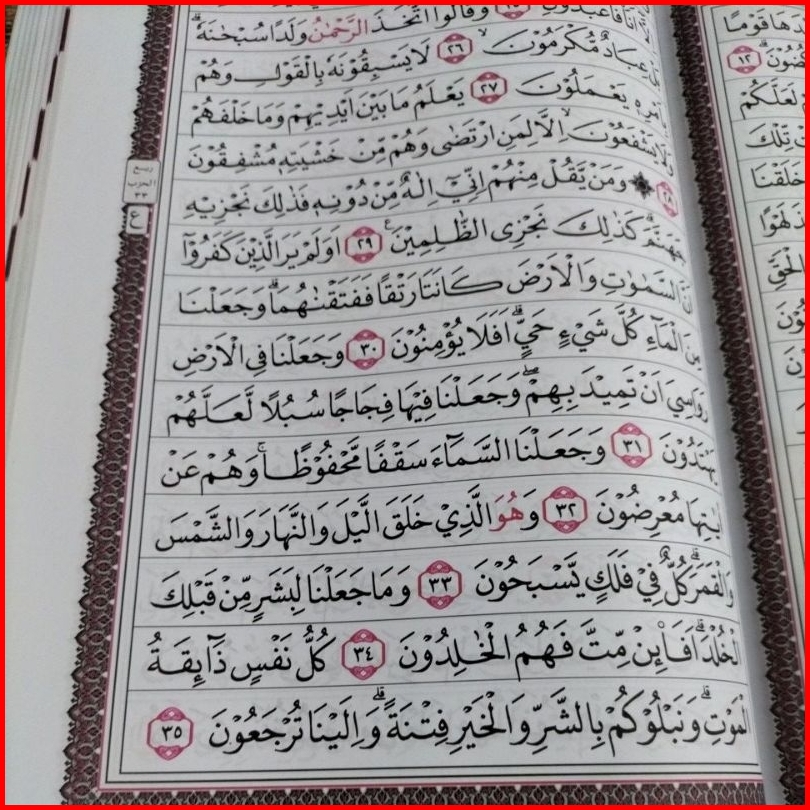 اَنَا۠ فَاعْبُدُوْنِ ٢٥ وَقَالُوا اتَّخَذَ الرَّحْمٰنُ وَلَدًا سُبْحٰنَهٗ ۗ
بَلْ عِبَادٌ مُّكْرَمُوْنَ ۙ ٢٦ لَا يَسْبِقُوْنَهٗ بِالْقَوْلِ وَهُمْ
بِاَمْرِهٖ يَعْمَلُوْنَ ٢٧ يَعْلَمُ مَا بَيْنَ اَيْدِيْهِمْ وَمَا خَلْفَهُمْ
وَلَا يَشْفَعُوْنَ ۙ اِلَّا لِمَنِ ارْتَضٰى وَهُمْ مِّنْ خَشْيَتِهٖ مُشْفِقُوْنَ
٢٨ ۞ وَمَنْ يَّقُلْ مِنْهُمْ اِنِّيْٓ اِلٰهٌ مِّنْ دُوْنِهٖ فَذٰلِكَ نَجْزِيْهِ
جَهَنَّمَۗ كَذٰلِكَ نَجْزِى الظّٰلِمِيْنَ ࣖ ٢٩ اَوَلَمْ يَرَ الَّذِيْنَ كَفَرُوْٓا
اَنَّ السَّمٰوٰتِ وَالْاَرْضَ كَانَتَا رَتْقًا فَفَتَقْنٰهُمَاۗ وَجَعَلْنَا
مِنَ الْمَاۤءِ كُلَّ شَيْءٍ حَيٍّۗ اَفَلَا يُؤْمِنُوْنَ ٣٠ وَجَعَلْنَا فِى الْاَرْضِ
رَوَاسِيَ اَنْ تَمِيْدَ بِهِمْۖ وَجَعَلْنَا فِيْهَا فِجَاجًا سُبُلًا لَّعَلَّهُمْ
يَهْتَدُوْنَ ٣١ وَجَعَلْنَا السَّمَاۤءَ سَقْفًا مَّحْفُوْظًاۚ وَهُمْ عَنْ
اٰيٰتِهَا مُعْرِضُوْنَ ٣٢ وَهُوَ الَّذِيْ خَلَقَ الَّيْلَ وَالنَّهَارَ وَالشَّمْسَ
وَالْقَمَرَۗ كُلٌّ فِيْ فَلَكٍ يَّسْبَحُوْنَ ٣٣ وَمَا جَعَلْنَا لِبَشَرٍ مِّنْ قَبْلِكَ
الْخُلْدَۗ اَفَا۟ىِٕنْ مِّتَّ فَهُمُ الْخٰلِدُوْنَ ٣٤ كُلُّ نَفْسٍ ذَاۤىِٕقَةُ
الْمَوْتِۗ وَنَبْلُوْكُمْ بِالشَّرِّ وَالْخَيْرِ فِتْنَةًۗ وَاِلَيْنَا تُرْجَعُوْنَ ٣٥
ربيع
الحزب
٣٣
ع
١٢
لَعَلَّكُمْ
تِلْكَ
خَلَقْنَا
الْحَقِّ